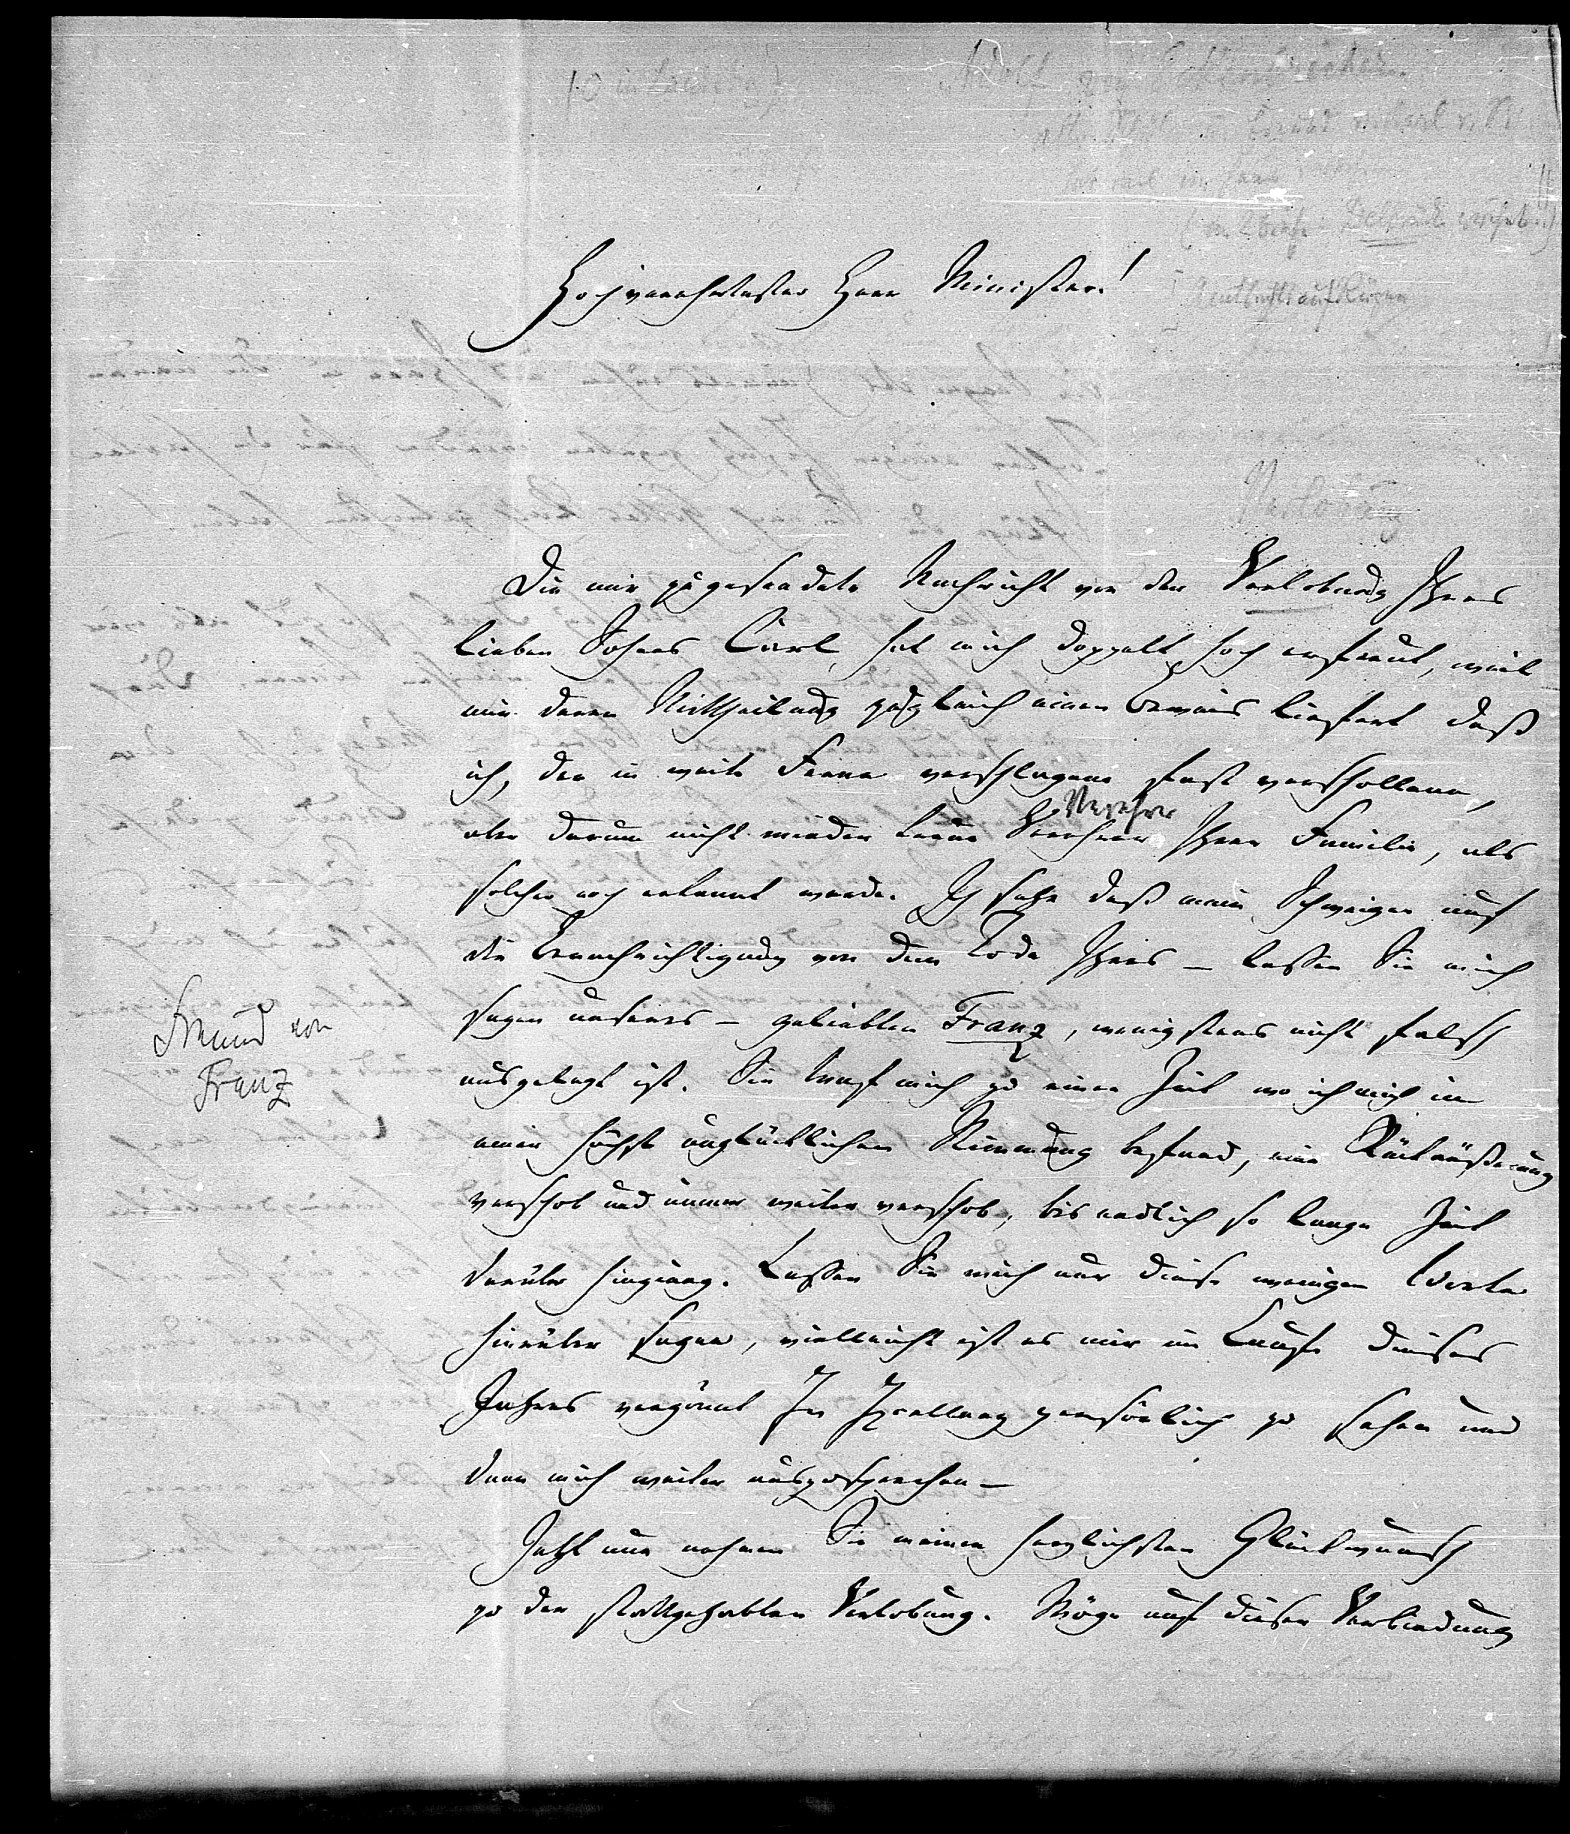 Hochverehrtester Herr Minister!
Verlobung
Die mir zugesendete Nachricht von der Verlobung Ihres
lieben Sohnes Carl, hat mich doppelt hoch erfreut, weil
mir deren Mittheilung zugleich einen Beweis liefert daß
ich, der in weite Ferne verschlagene fast verschollene,
aber darum nicht minder treue Verehrer Ihrer Familie, als
Verehrer
solcher noch erkannt werde. Ich sehe daß mein Schweigen auf
die Benachrichtigung von dem Tode Ihres – lassen Sie mich
sagen unseres – geliebten Franz, wenigstens nicht falsch
Freund von
Franz
ausgelegt ist. Sie traf mich zu einer Zeit wo ich mich in
einer höchst unglücklichen Stimmung befand, eine Rückäußerung
verschob und immer weiter verschob, bis endlich so lange Zeit
darüber hinging. Lassen Sie mich nur diese wenigen Worte
hierüber sagen, vielleicht ist es mir im Laufe dieses
Jahres vergönnt Sie persönlich zu sehen und
dann mich weiter auszusprechen –
Jetzt nun nehmen Sie meinen herzlichsten Glückwunsch
zu der stattgehabten Verlobung. Möge auf dieser Verbindung